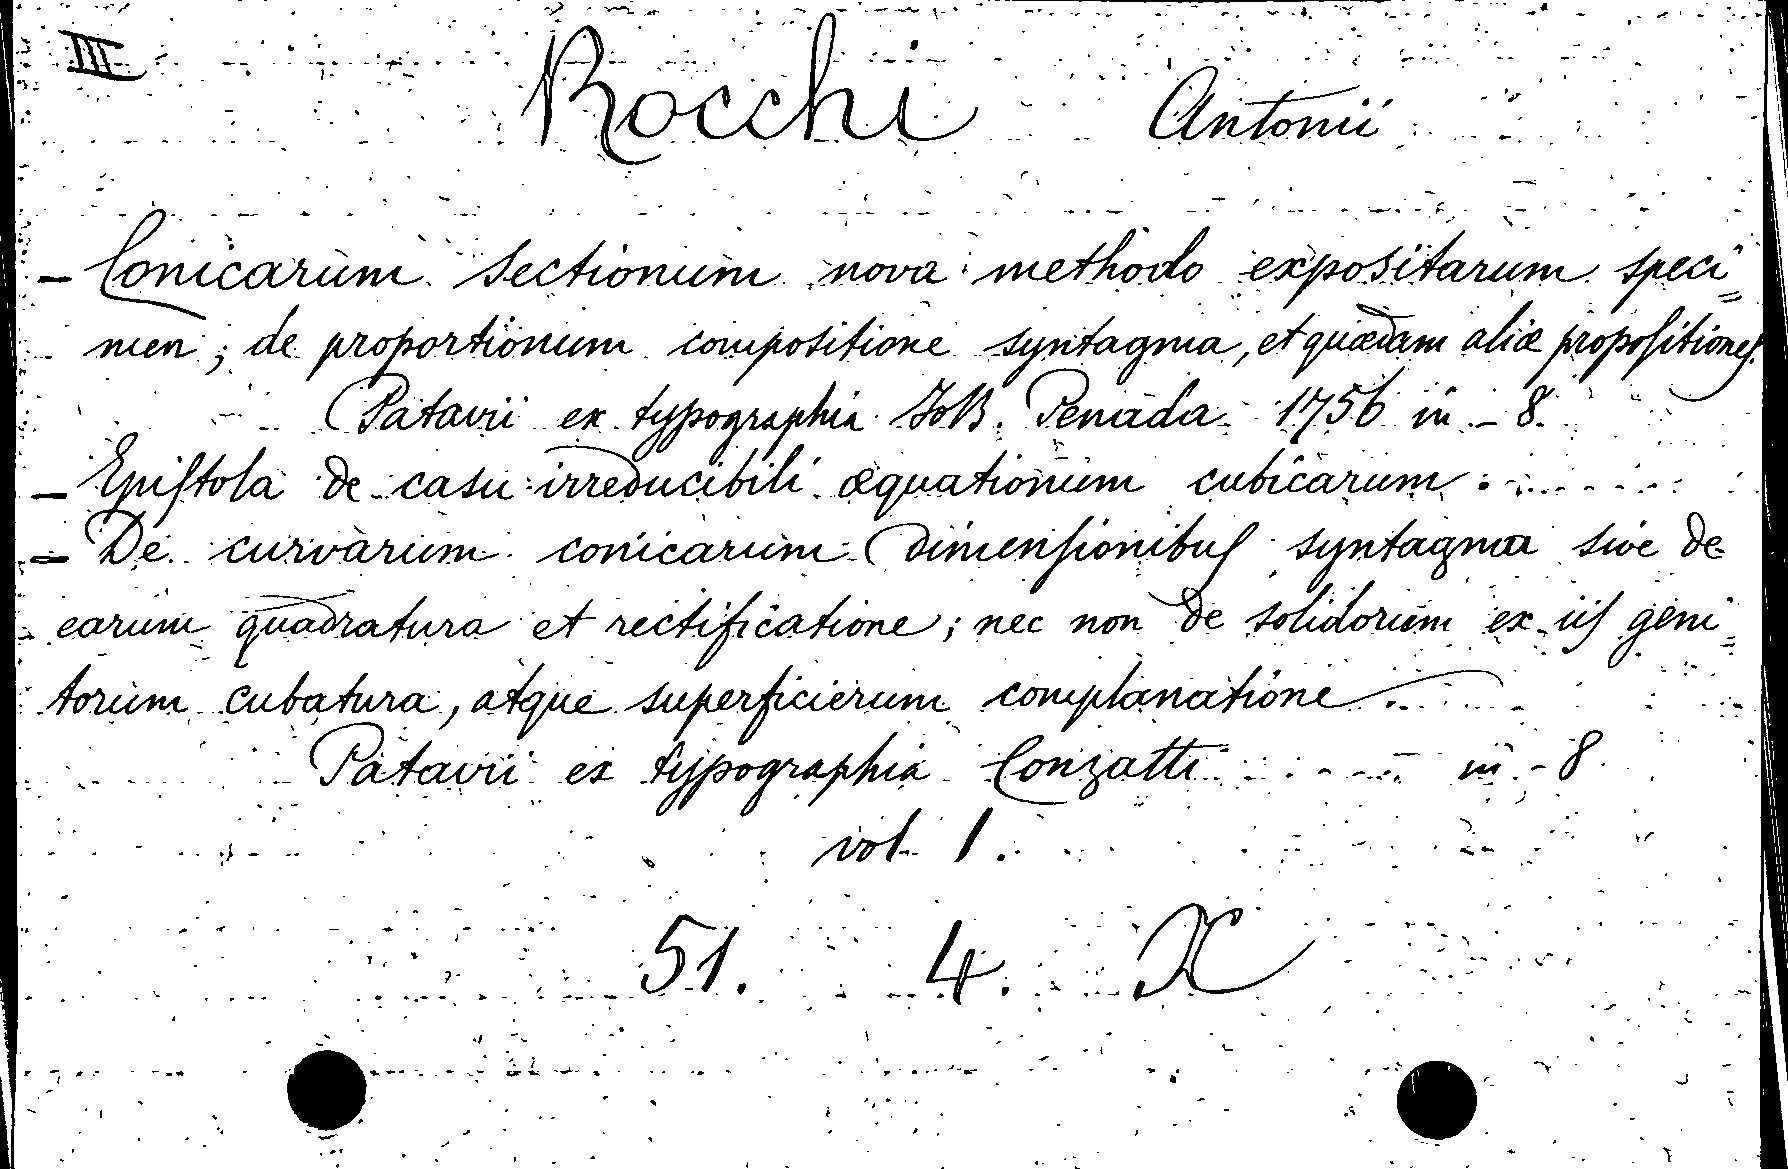 III
Rocchi Antonii
- Conicarum sectionum nova methodo expositarum speci=
men; de proportionum compositione syntagma, et quædam aliæ propoſitioneſ.
Patavii ex typographia JoB. Penada 1756 in - 8.
- Epiſtola de casu irreducibili æquationum cubicarum.
- De curvarum conicarum dimenſionibuſ syntagma sive de
earum quadratura et rectificatione; nec non de solidorum ex iiſ geni=
torum cubatura, atque superficierum complanatione
Patavii ex typographia Conzatti in - 8.
vol 1.
51. 4. X